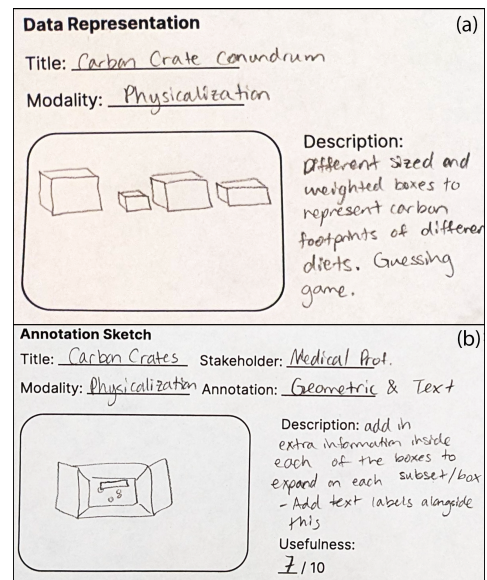 Data Representation
(a)
Title: Carbon Crate Conundrum
Modality: Physicalization
Description:
Different sized and
weighted boxes to
represent carbon
footprints of differen
diets. Guessing
game.
Annotation Sketch
(b)
Title: Carbon Crates Stakeholder: Medical Prof.
Modality: Physicalization Annotation: Geometric & Text
Description: add in
extra information inside
each of the boxes to
expand on each subset/box
- Add text labels alongside
this
Usefulness:
7/10